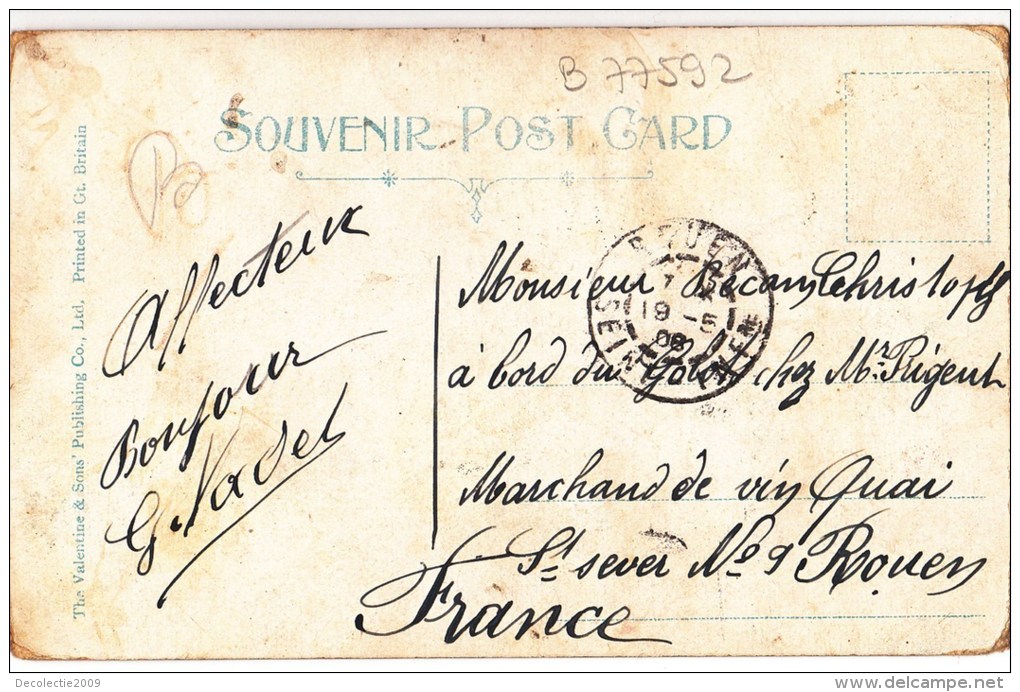 B 77592
SOUVENIR POST CARD
The Valentine & Sons' Publishing Co., Ltd. Printed in Gt. Britain
Affecteux
Bonjour
G. Nadel
ROUEN
19 - 5
08
Monsieur Bacam Christoph
à bord du Golo chez Mr. Prigent
Marchand de vin Quai
St sever No 9 Rouen
France
Decolectie2009
delcampe.net